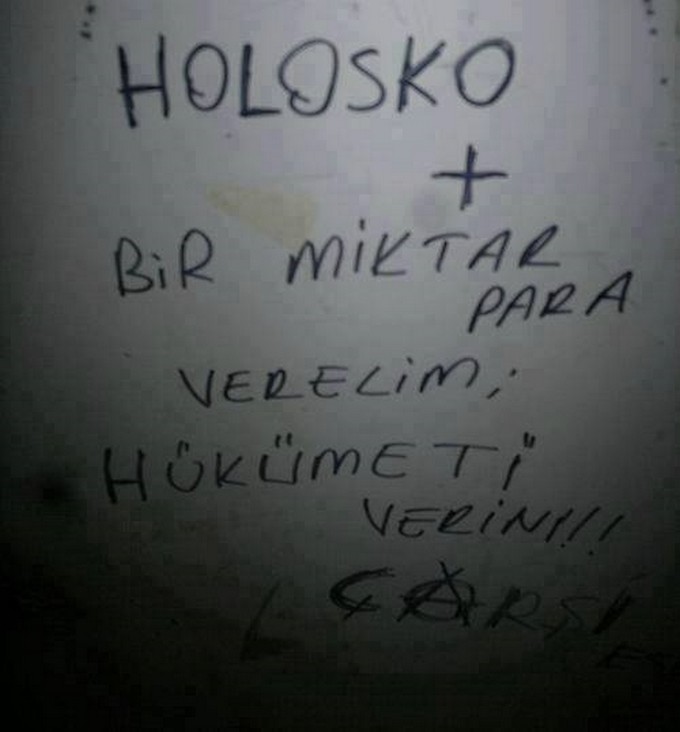 HOLOSKO
+
BİR MİKTAR
PARA
VERELİM;
HÜKÜMETİ
VERİN!!!
ÇARŞI